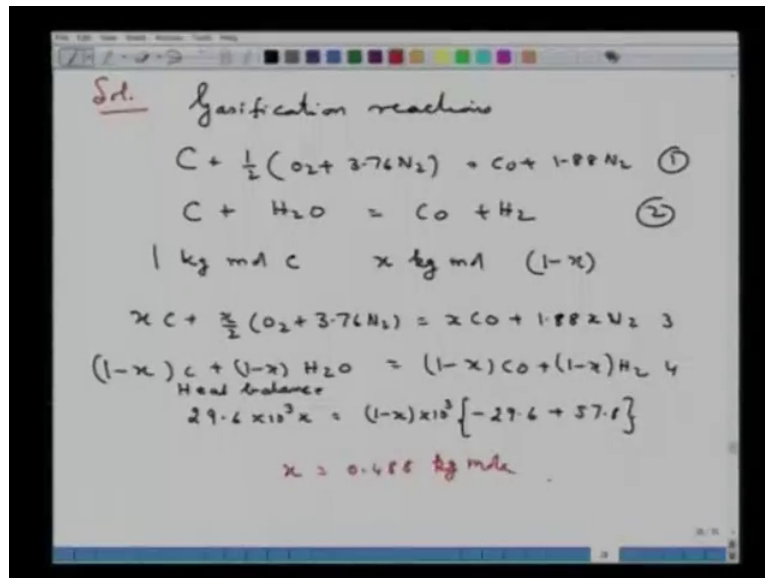 Sol. Gasification reactions
C + 1/2 (O2 + 3.76 N2) = CO + 1.88 N2 ①
C + H2O = CO + H2 ②
1 kg mol C x kg mol (1-x)
x C + x/2 (O2 + 3.76 N2) = x CO + 1.88 x N2 3
(1-x) C + (1-x) H2O = (1-x) CO + (1-x) H2 4
Heat balance
29.6 x10³ x = (1-x) x10³ {-29.6 + 57.8}
x = 0.488 kg mole